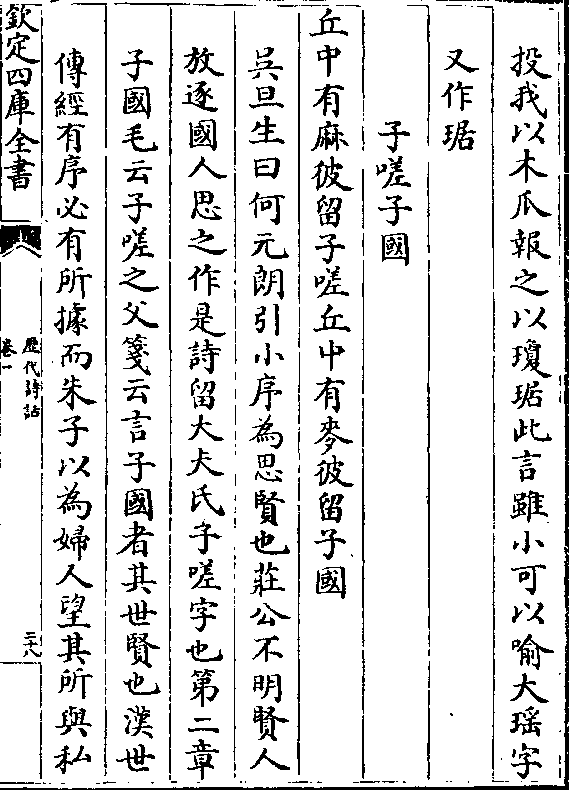 投我以木瓜報之以瓊琚此言雖小可以喻大瑶字
又作琚
子嗟子國
丘中有麻彼留子嗟丘中有麥彼留子國
吳旦生曰何元朗引小序為思賢也莊公不明賢人
放逐國人思之作是詩留大夫氏子嗟字也第二章
子國毛云子嗟之父箋云言子國者其世賢也漢世
傳經有序必有所據而朱子以為婦人望其所與私
欽定四庫全書
歷代詩話
卷一
二十八